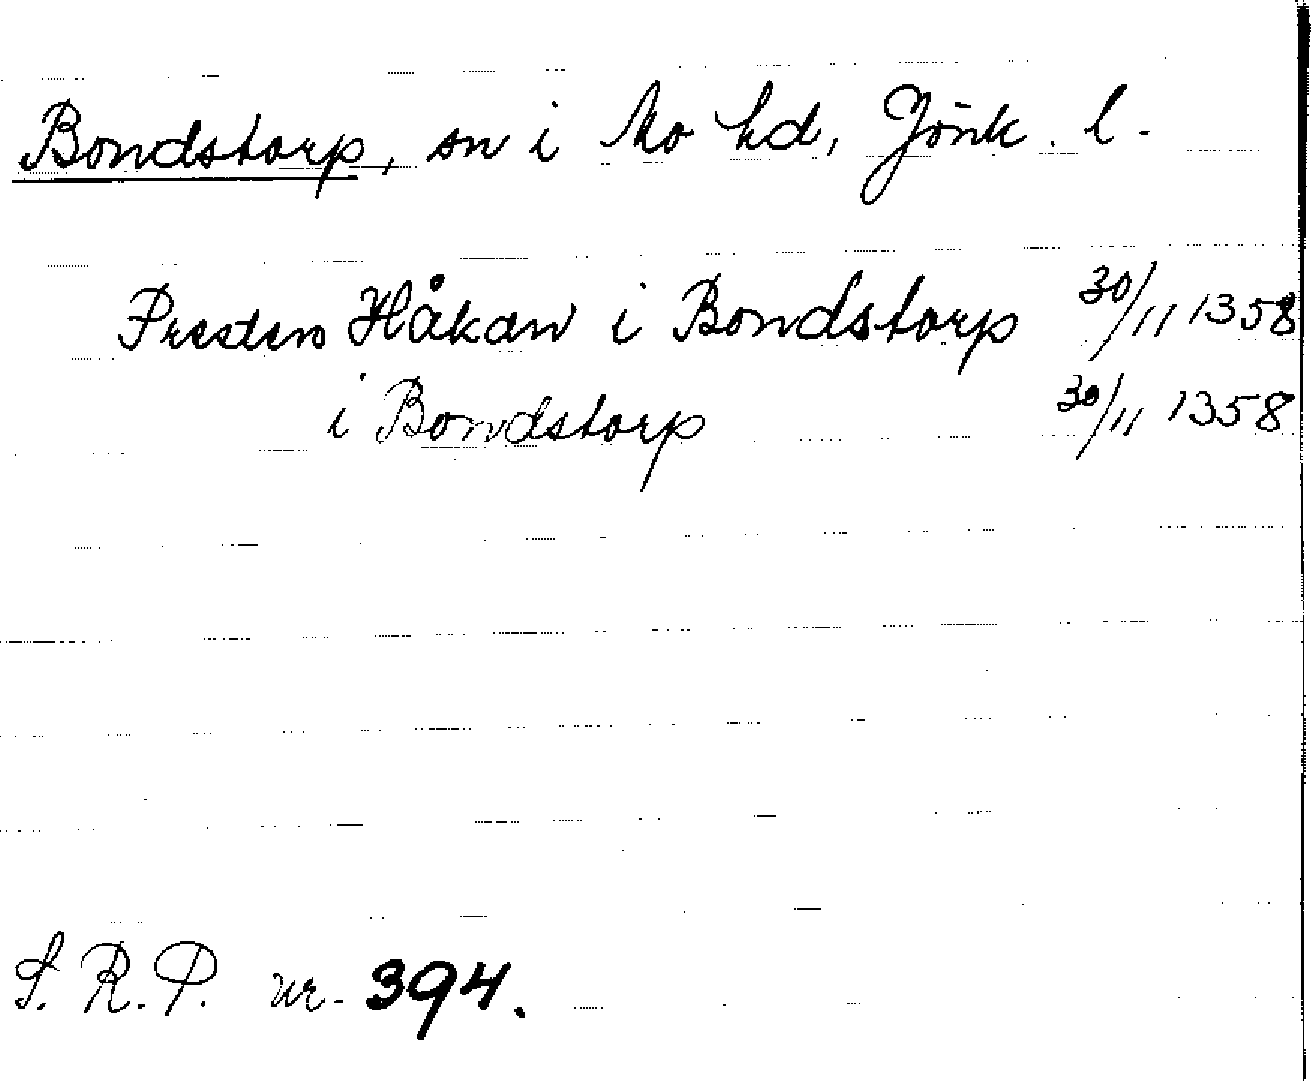 Bondstorp, sn i Mo hd, Jönk. l.
Presten Håkan i Bondstorp 30/11 1358
i Bondstorp 30/11 1358
S. R. P. nr. 394.